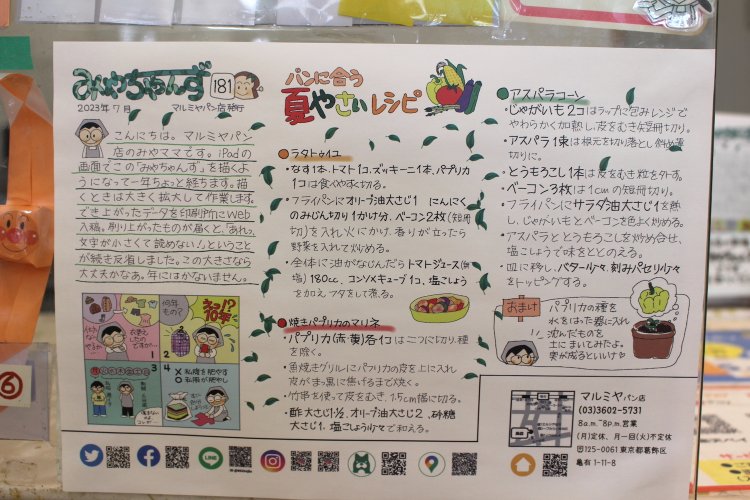 みやちゃんず
181
2023年7月
マルミヤパン店発行
こんにちは。マルミヤパン
店のみやママです。iPadの
画面でこの「みやちゃんず」を描くよ
うになって一年ちょっと経ちます。描
くときは大きく拡大して作業します。
でき上がったデータを印刷所にWeb
入稿。刷り上がったものが届くと、「あれ、
文字が小さくて読めない!」ということ
が続き反省しました。この大きさなら
大丈夫かなあ。年にはかないません。
何年もの?
10年
1
2
3
4
×私腹を肥やす
○私服が肥やし
パンに合う
夏やさいレシピ
●ラタトゥイユ
・なす1本、トマト1コ、ズッキーニ1本、パプリカ
1コは食べやすく切る。
・フライパンにオリーブ油大さじ1 にんにく
のみじん切り1かけ分、ベーコン2枚(短冊
切り)を入れ火にかけ、香りが立ったら
野菜を入れて炒める。
・全体に油がなじんだらトマトジュース(無
塩)180cc、コンソメキューブ1コ、塩こしょう
を加え、フタをして煮る。
●焼きパプリカのマリネ
・パプリカ(赤・黄)各1コは二つに切り、種
を除く。
・魚焼きグリルにパプリカの皮を上に入れ
皮がまっ黒に焦げるまで焼く。
・竹串を使って皮をむき、1.5cm幅に切る。
・酢大さじ1/2、オリーブ油大さじ2、砂糖
大さじ1、塩こしょう少々で和える。
●アスパラコーン
・じゃがいも2コはラップに包みレンジで
やわらかく加熱し、皮をむき短冊切り。
・アスパラ1束は根元を切り落とし斜め薄
切りに。
・とうもろこし1本は皮をむき粒を外す。
・ベーコン3枚は1cmの短冊切り。
・フライパンにサラダ油大さじ1を熱
し、じゃがいもとベーコンを色よく炒める。
・アスパラととうもろこしを炒め合せ、
塩こしょうで味をととのえる。
・皿に移し、バター少々、刻みパセリ少々
をトッピングする。
おまけ
パプリカの種を
水をはった器に入れ
沈んだものを
土にまいてみたよ。
実が成るといいけど
マルミヤパン店
(03)3602-5731
8a.m.~8p.m.営業
(月)定休、月一回(火)不定休
〒125-0061 東京都葛飾区
亀有1-11-8
LINE
⑥